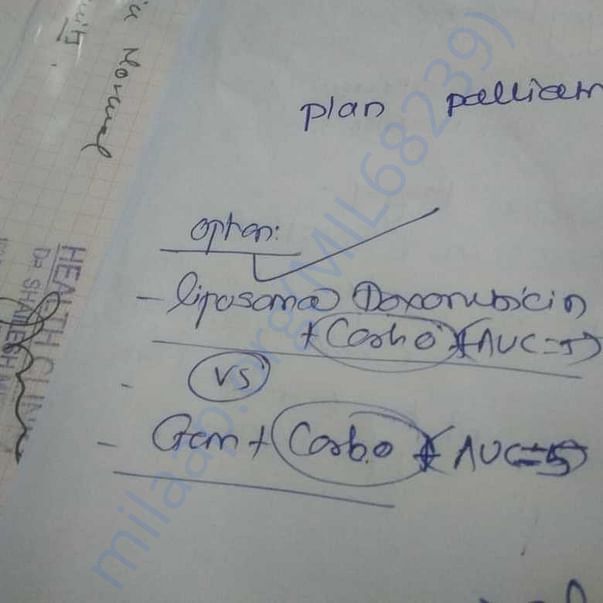 plan
option:
- liposomal Doxorubicin
+ Carbo (AUC=5)
- VS
- Gem + Carbo (AUC=5)
HEALTH CLINI
Dr SHAILESH
Normal
milaap.org(MIL68239)